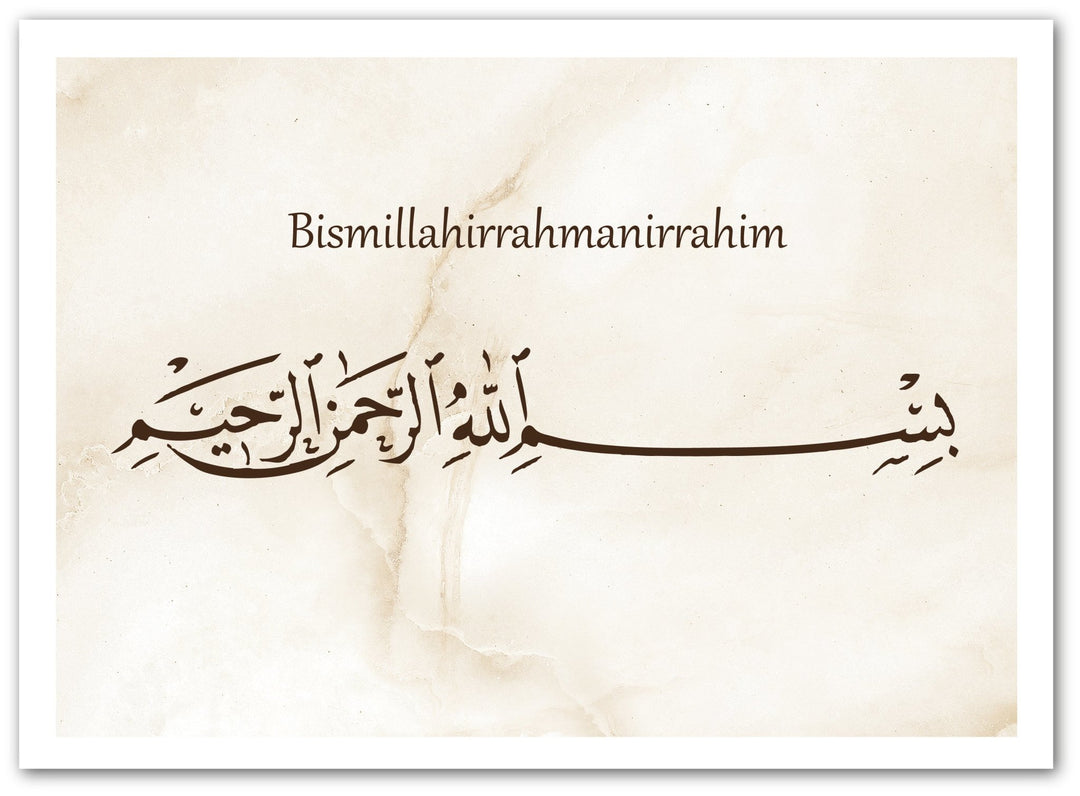 Bismillahirrahmanirrahim
بِسْمِ ٱللَّهِ ٱلرَّحْمَٰنِ ٱلرَّحِيمِ